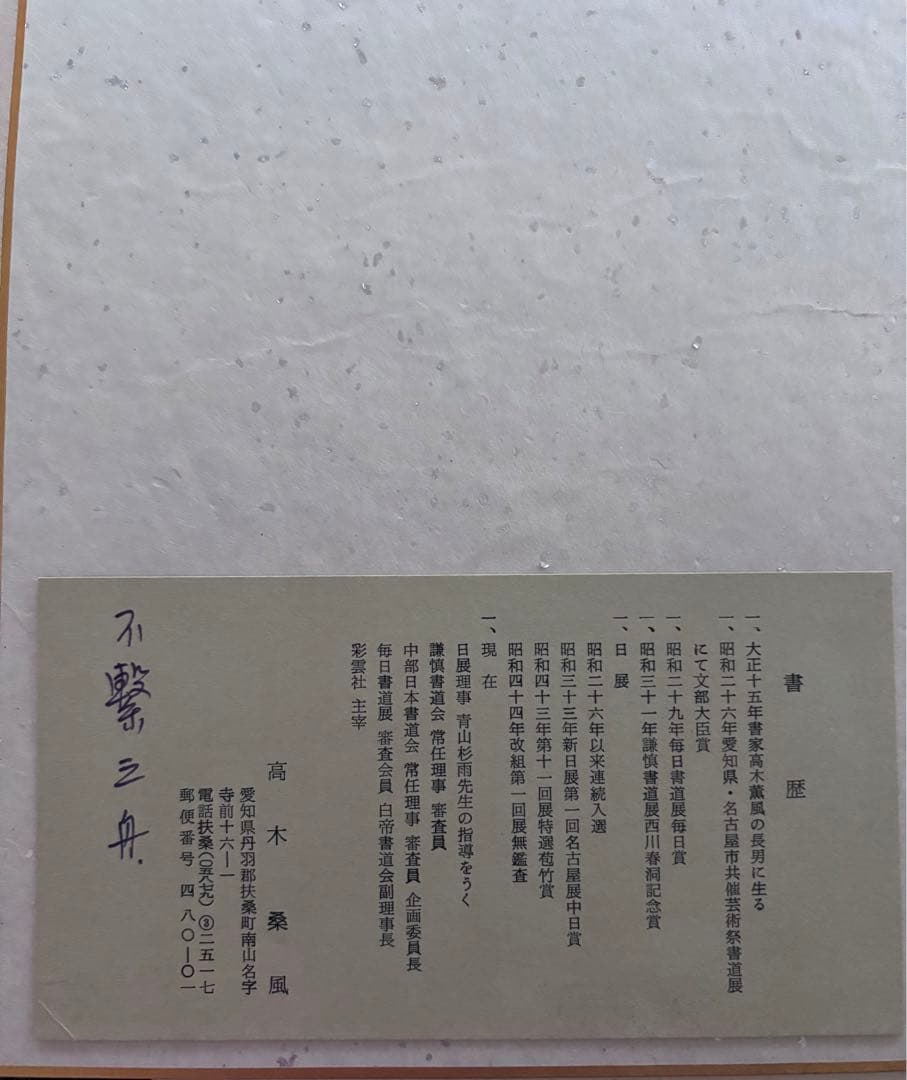 書歴
一、大正十五年書家高木薫風の長男に生る
一、昭和二十六年愛知県・名古屋市共催芸術祭書道展
にて文部大臣賞
一、昭和二十九年毎日書道展毎日賞
一、昭和三十一年謙慎書道展西川春洞記念賞
一、日展
昭和二十六年以来連続入選
昭和三十三年新日展第一回名古屋展中日賞
昭和四十三年第十一回展特選苞竹賞
昭和四十四年改組第一回展無鑑査
一、現在
日展理事 青山杉雨先生の指導をうく
謙慎書道会 常任理事 審査員
中部日本書道会 常任理事 審査員 企画委員長
毎日書道展 審査会員 白帝書道会副理事長
彩雲社 主宰
高木桑風
愛知県丹羽郡扶桑町南山名字
寺前十六―一
電話扶桑(〇五八七九)③二五一七
郵便番号 四八〇―〇一
不繫之舟.